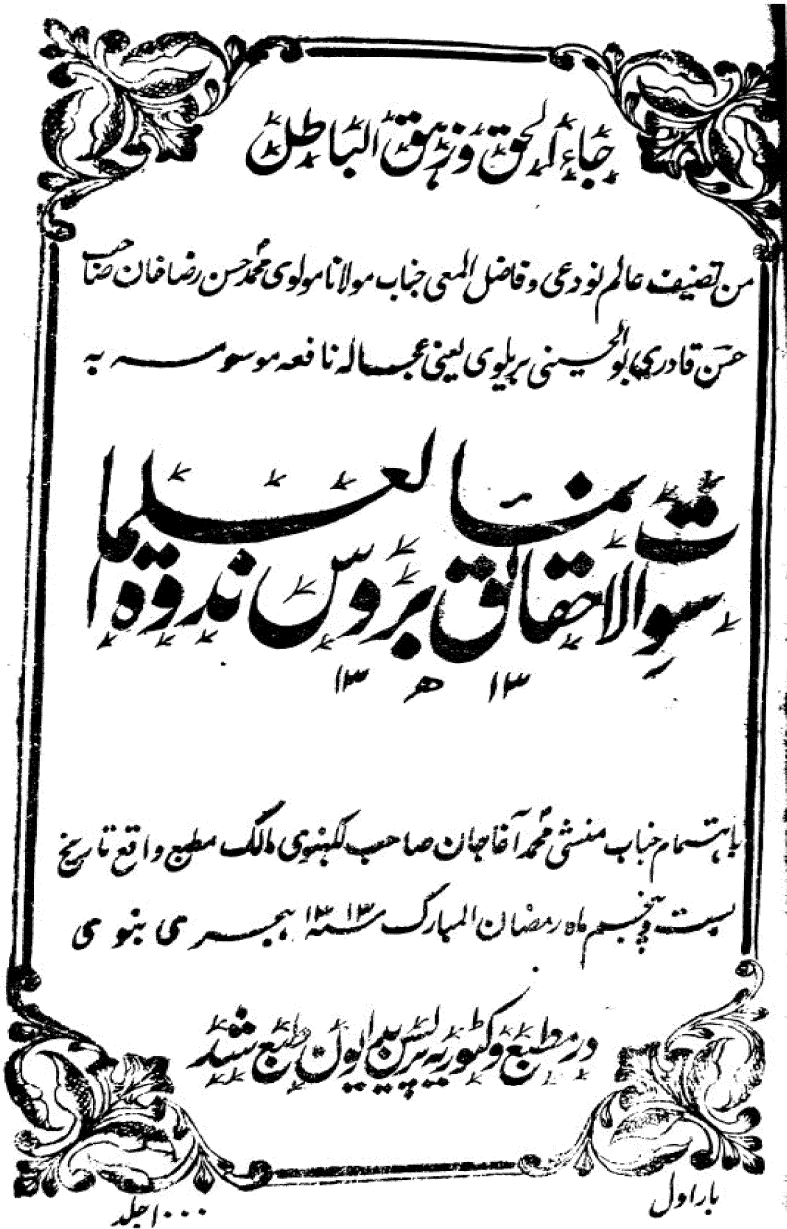 جاء الحق و زہق الباطل
من تصنیف عالم لوذعی و فاضل المعی جناب مولانا مولوی محمد حسن رضا خان صاحب
حسن قادری بوالحسینی بریلوی یعنی عجالہ نافعہ موسومہ بہ
سوالات حقائق نما بروس ندوۃ العلما
۱۳ ھ ۱۳
باہتمام جناب منشی محمد آغا جان صاحب لکہنوی مالک مطبع واقع تاریخ
بست و پنجم ماہ رمضان المبارک ۱۳۱۳ ہجری بنوی
در مطبع وکٹوریہ پریس بدایون طبع شد
بار اول
۱۰۰۰ جلد